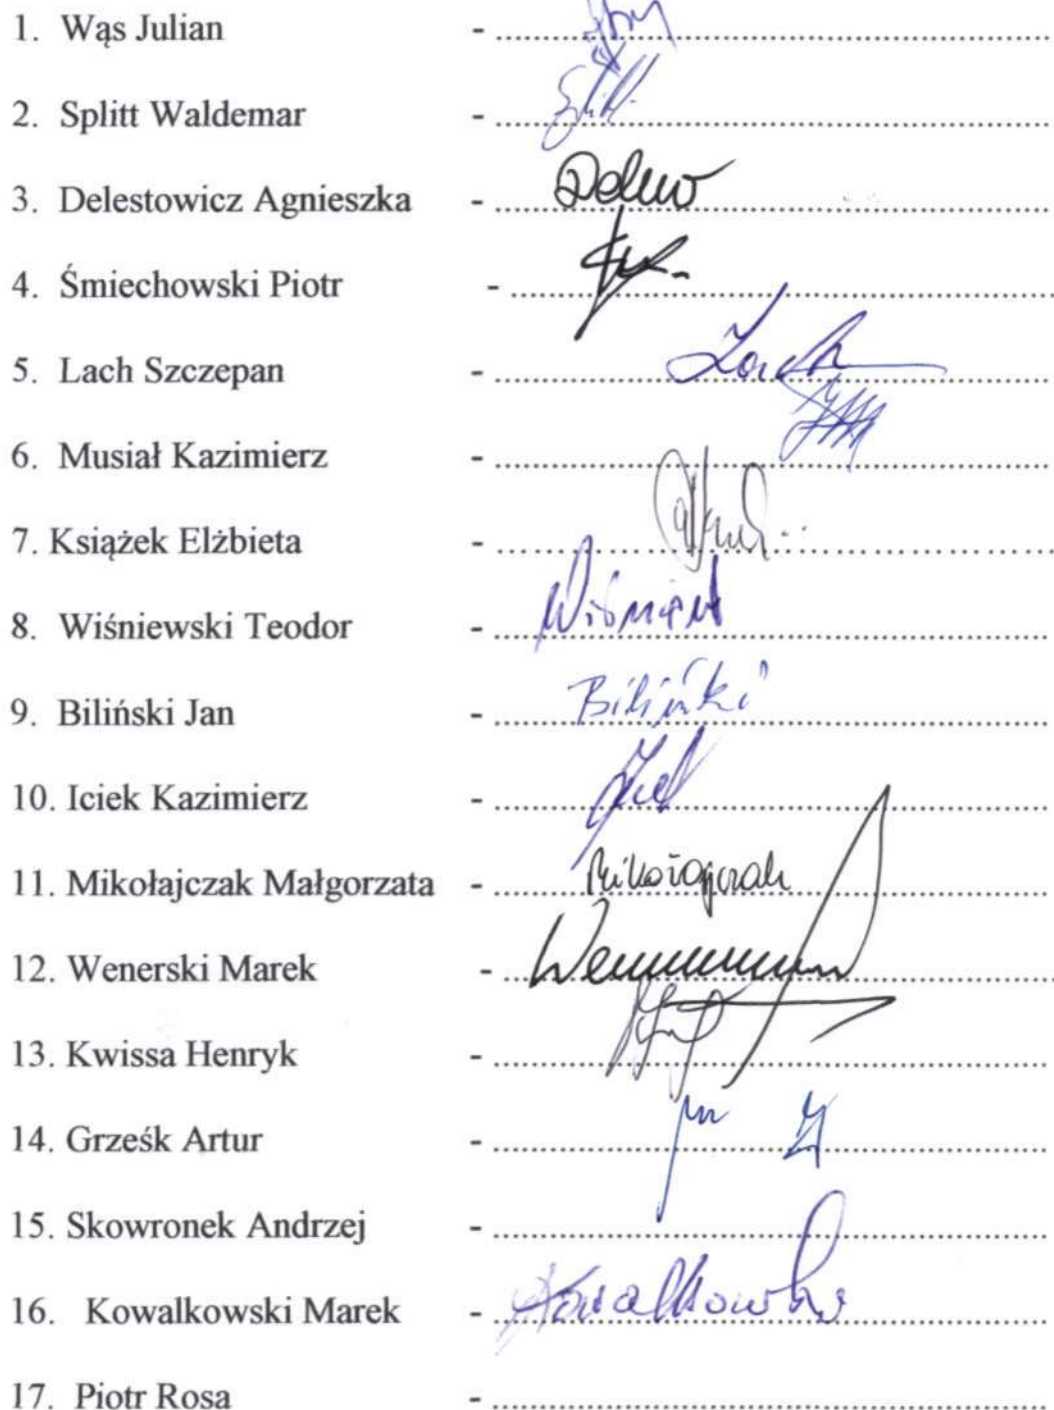 1. Wąs Julian - ........................
2. Splitt Waldemar - ........................
3. Delestowicz Agnieszka - ........................
4. Śmiechowski Piotr - ........................
5. Lach Szczepan - ........................ Lach
6. Musiał Kazimierz - ........................
7. Książek Elżbieta - ........................
8. Wiśniewski Teodor - ........................
9. Biliński Jan - ........................ Biliński
10. Iciek Kazimierz - ........................
11. Mikołajczak Małgorzata - ........................ Mikołajczak
12. Wenerski Marek - ........................
13. Kwissa Henryk - ........................
14. Grześk Artur - ........................
15. Skowronek Andrzej - ........................
16. Kowalkowski Marek - ........................ Kowalkowski
17. Piotr Rosa - ........................